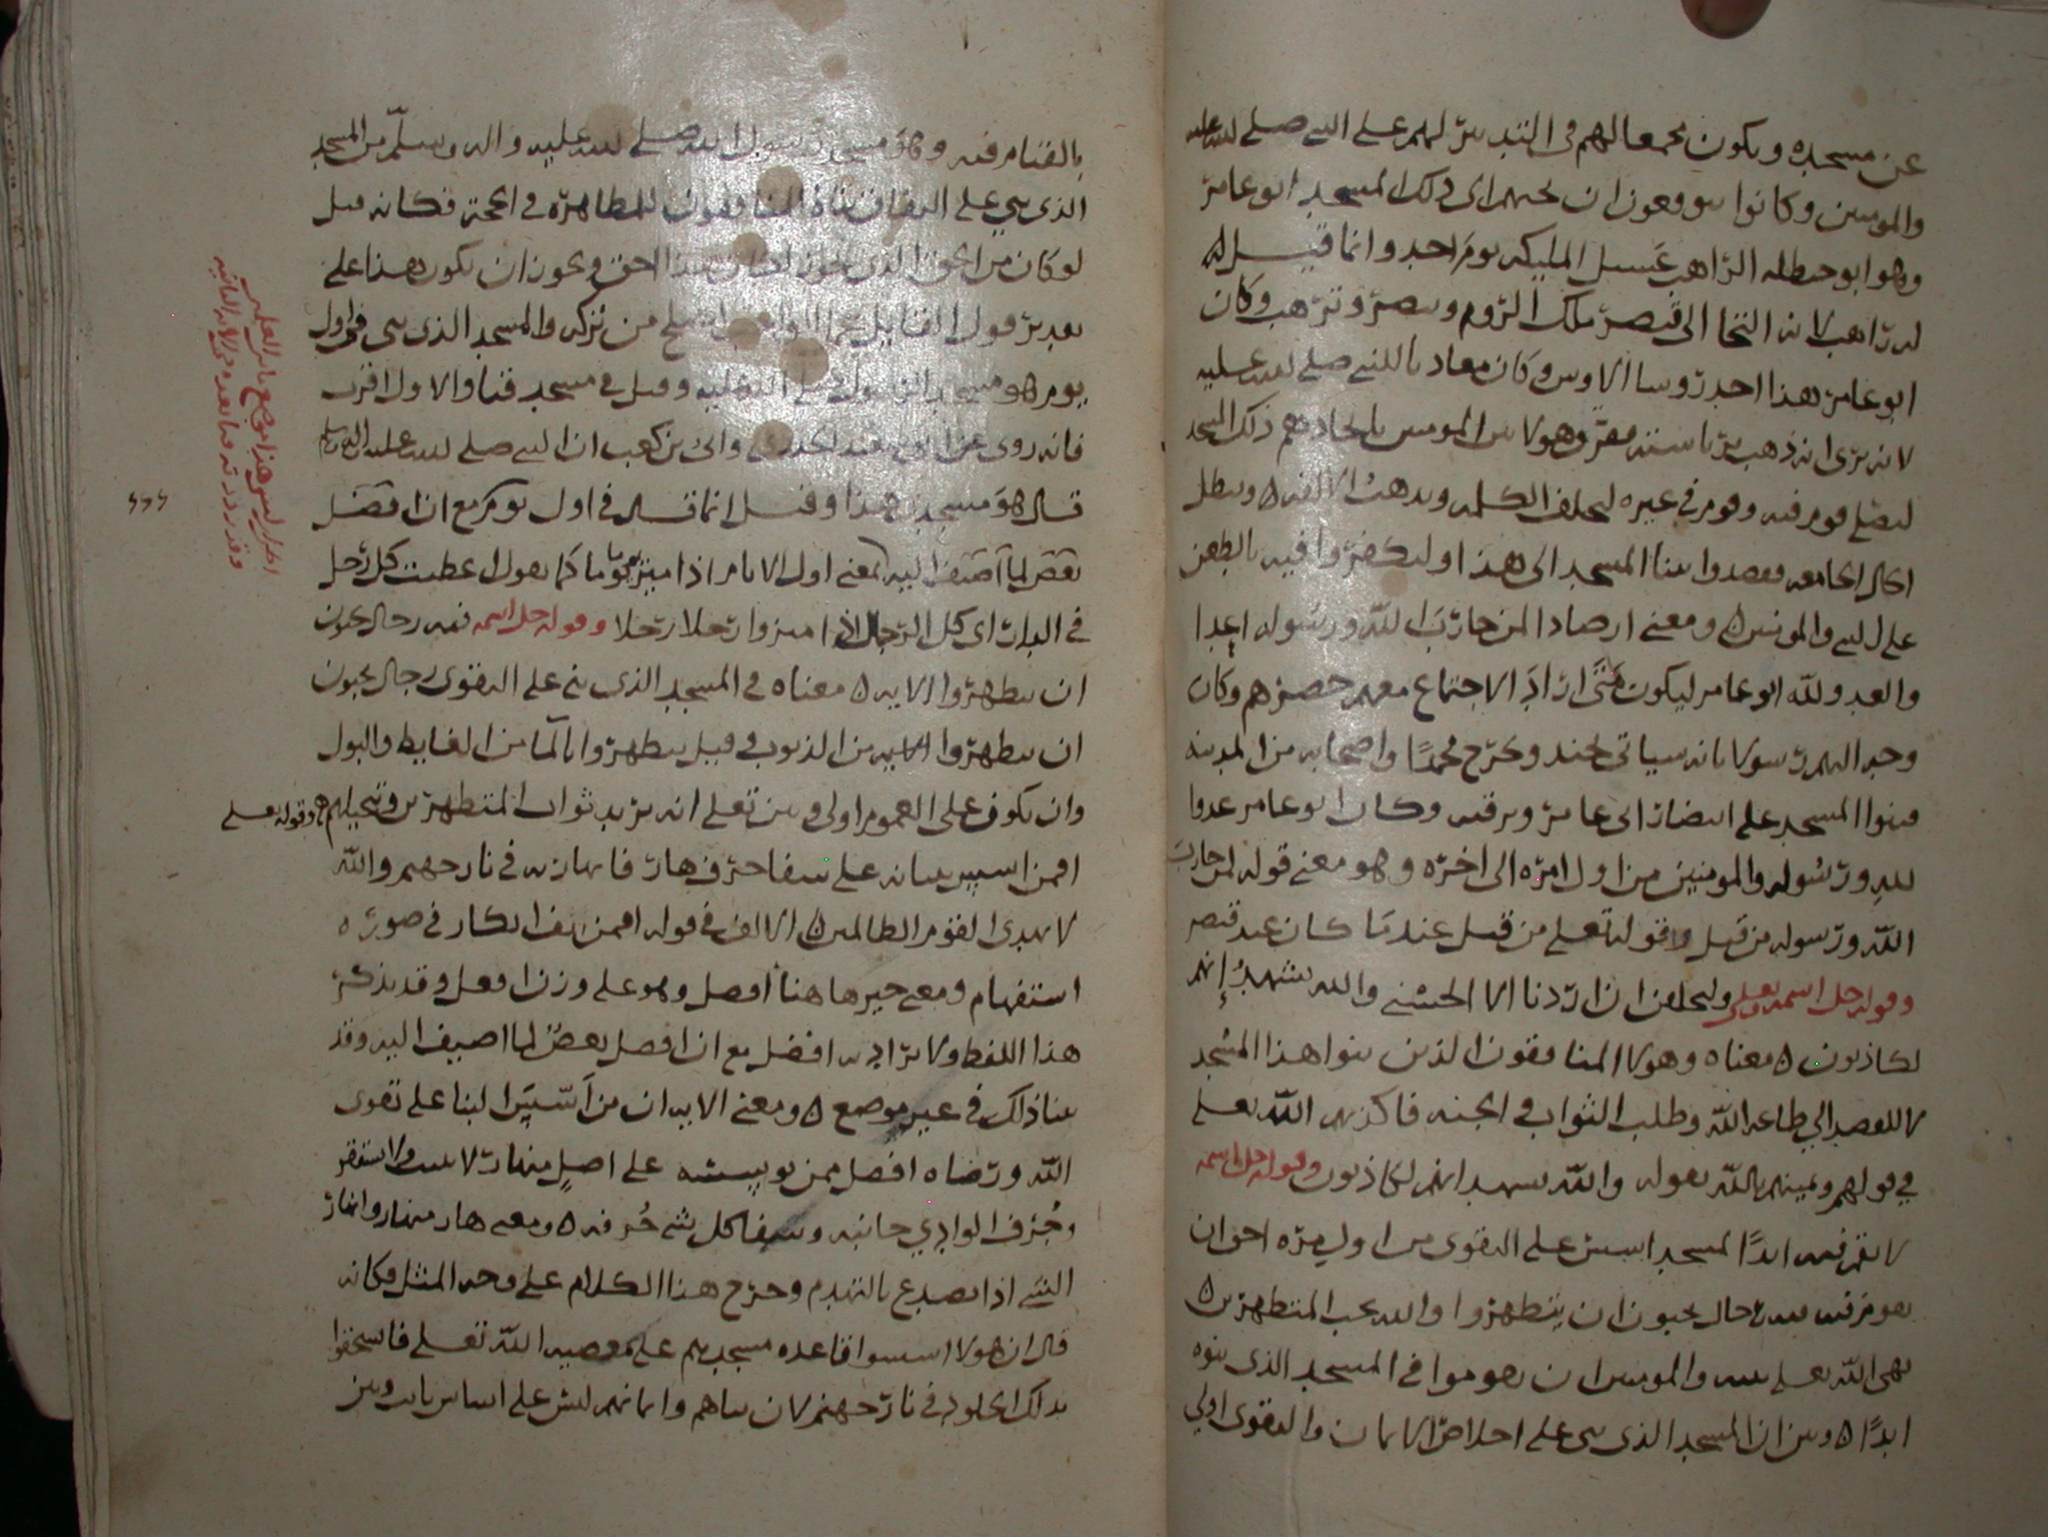 عن مسجده ويكون مجمعا لهم في التدبير لهم على النبي صلى الله عليه
والمومنين وكانوا يتوقعون ان يجيهم الى ذلك المسجد ابو عامر
وهو ابو حنظله الراهب غسيل المليكه يوم احد وانما قيل له
له راهب لانه التجا الى قيصر ملك الروم وتنصر وترهب وكان
ابو عامر هذا احد روسا الاوس وكان معاديا للنبي صلى الله عليه
لانه يرى انه ذهب برياسته مفرق هولا بين المومنين باتخاذهم ذلك المسجد
ليصلي قوم فيه وقوم في غيره لتختلف الكلمه وتذهب الالفه ه ويبطل
الحال الجامعه فقصدوا ببنا المسجد الى هذا وليكفروا فيه بالطعن
على النبي والمومنين ه ومعنى ارصادا لمن حارب الله ورسوله اعدا
والعدو لله ابو عامر ليكون متى اراد الاجتماع معهم حضرهم وكان
وجه اليهم رسولا بانه سياتي بجند ويخرج محمدا واصحابه من المدينه
فبنوا المسجد على انتظار ابي عامر وترقبه وكان ابو عامر عدوا
لله ورسوله والمومنين من اول امره الى اخره وهو معنى قوله لمن حارب
الله ورسوله من قبل وقوله تعلى من قبل عندما كان عند قيصر
وقوله جل اسمه تعلى وليحلفن ان اردنا الا الحسنى والله يشهد إنهم
لكاذبون ه معناه وهولا المنافقون الذين بنوا هذا المسجد
لا للقصد الي طاعه الله وطلب الثواب في الجنه فاكذبهم الله تعلى
في قولهم ويمينهم بالله بقوله والله يشهد انهم لكاذبون وقوله جل اسمه
لا تقم فيه ابدًا لمسجد اسس على التقوى من اول يوم احق ان
تقوم فيه فيه رجال يحبون ان يتطهروا والله يحب المتطهرين ه
نهى الله تعلى نبيه والمومنين ان يقوموا في المسجد الذي بنوه
ابدًا ه وبين ان المسجد الذي بني على اخلاص الايمان والتقوى اولي
بالقيام فيه وهو مسجد رسول الله صلى الله عليه واله وسلم من المسجد
الذي بني على النفاق بناه المنافقون للمظاهره في الحجة فكانه قيل
لو كان من الحق الذي يجوز لكان هذا احق ويجوز ان يكون هذا على
تقدير قول القايل عمل الواجب اصلح من تركه والمسجد الذي بني في اول
يوم هو مسجد الرسول صلى الله عليه وقيل في مسجد قبا والاول اقرب
فانه روى عن ابي سعيد الخدري وابي بن كعب ان النبي صلى الله عليه اله وسلم
قال هو مسجدي هذا وقيل انما قال في اول يوم مع ان افضل
بعض لما اضيف اليه لمعنى اول الايام اذا ميز يوما يوما كما تقول اعطيت كل رجل
في الدار اي كل الرجال اذا ميزوا رجلا رجلا وقوله جل اسمه فيه رجال يحبون
ان يتطهروا الايه ه معناه في المسجد الذي بني على التقوى رجال يحبون
ان يتطهروا من الذنوب وقيل يتطهروا بالما من الغايط والبول
وان يكون على العموم اولى وبين تعلى انه يريد ثواب المتطهرين وتبجيلهم ه وقوله تعلى
افمن اسس بنيانه على شفا جرف هار فانهار به في نار جهنم والله
لا يهدى القوم الظالمين ه الالف في قوله افمن الف انكار في صوره
استفهام ومعنى خير هاهنا افضل وهو على وزن افعل وقد يذكر
هذا اللفظ ولا يراد به افضل مع ان افضل بعض لما اضيف اليه وقد
بينا ذلك في غير موضع ه ومعنى الايه ان من اسّس البنا على تقوى
الله ورضاه افضل ممن يوسسه على اصل منهار لا يثبت ولا استقر
وجُرف الوادي جانبه وشفا كل شي حرفه ه ومعنى هار منهار وانهار
الشي اذا تصدع بالتهدم وخرج هذا الكلام على وجه المثل فكانه
قال ان هولا اسسوا قاعده مسجدهم على معصيه الله تعلى فاستحقوا
بذلك الخلود في نار جهنم لان بناهم وايمانهم ليس على اساس ثابت وبين